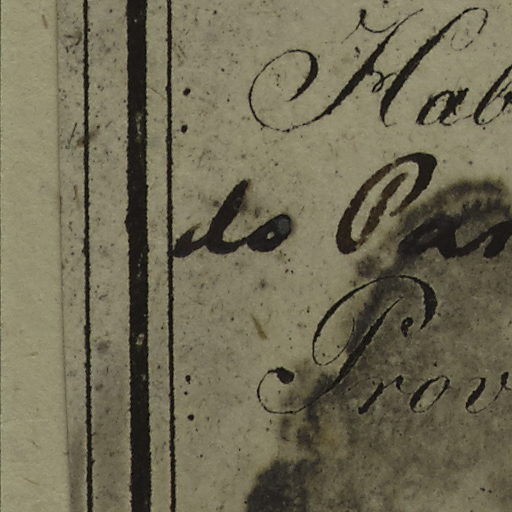 Hab
do Par
Prov